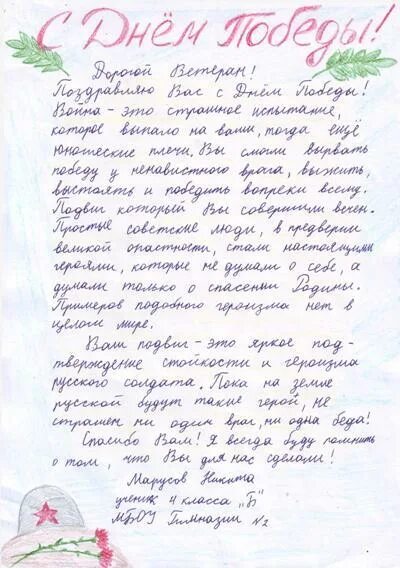 С Днём Победы!
Дорогой Ветеран!
Поздравляю Вас с Днём Победы!
Война - это страшное испытание,
которое выпало на ваши, тогда ещё
юношеские плечи. Вы смогли вырвать
победу у ненавистного врага, выжить,
выстоять и победить вопреки всему.
Подвиг который Вы совершили вечен.
Простые советские люди, в предверии
великой опастности, стали настоящими
героями, которые не думали о себе, а
думали только о спасении Родины.
Примеров подобного героизма нет в
целом мире.
Ваш подвиг - это яркое под-
тверждение стойкости и героизма
русского солдата. Пока на земле
русской будут такие герои, не
страшен ни один враг, ни одна беда!
Спасибо Вам! Я всегда буду помнить
о том, что Вы для нас сделали!
Марусов Никита
ученик 4 класса "Б"
МБОУ Гимназии №2